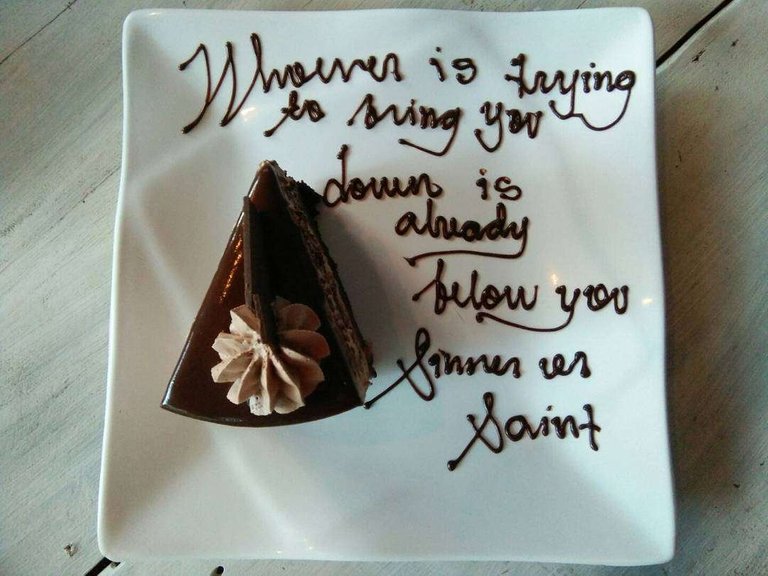 Whoever is trying
to bring you
down is
already
below you
Sinner or
Saint